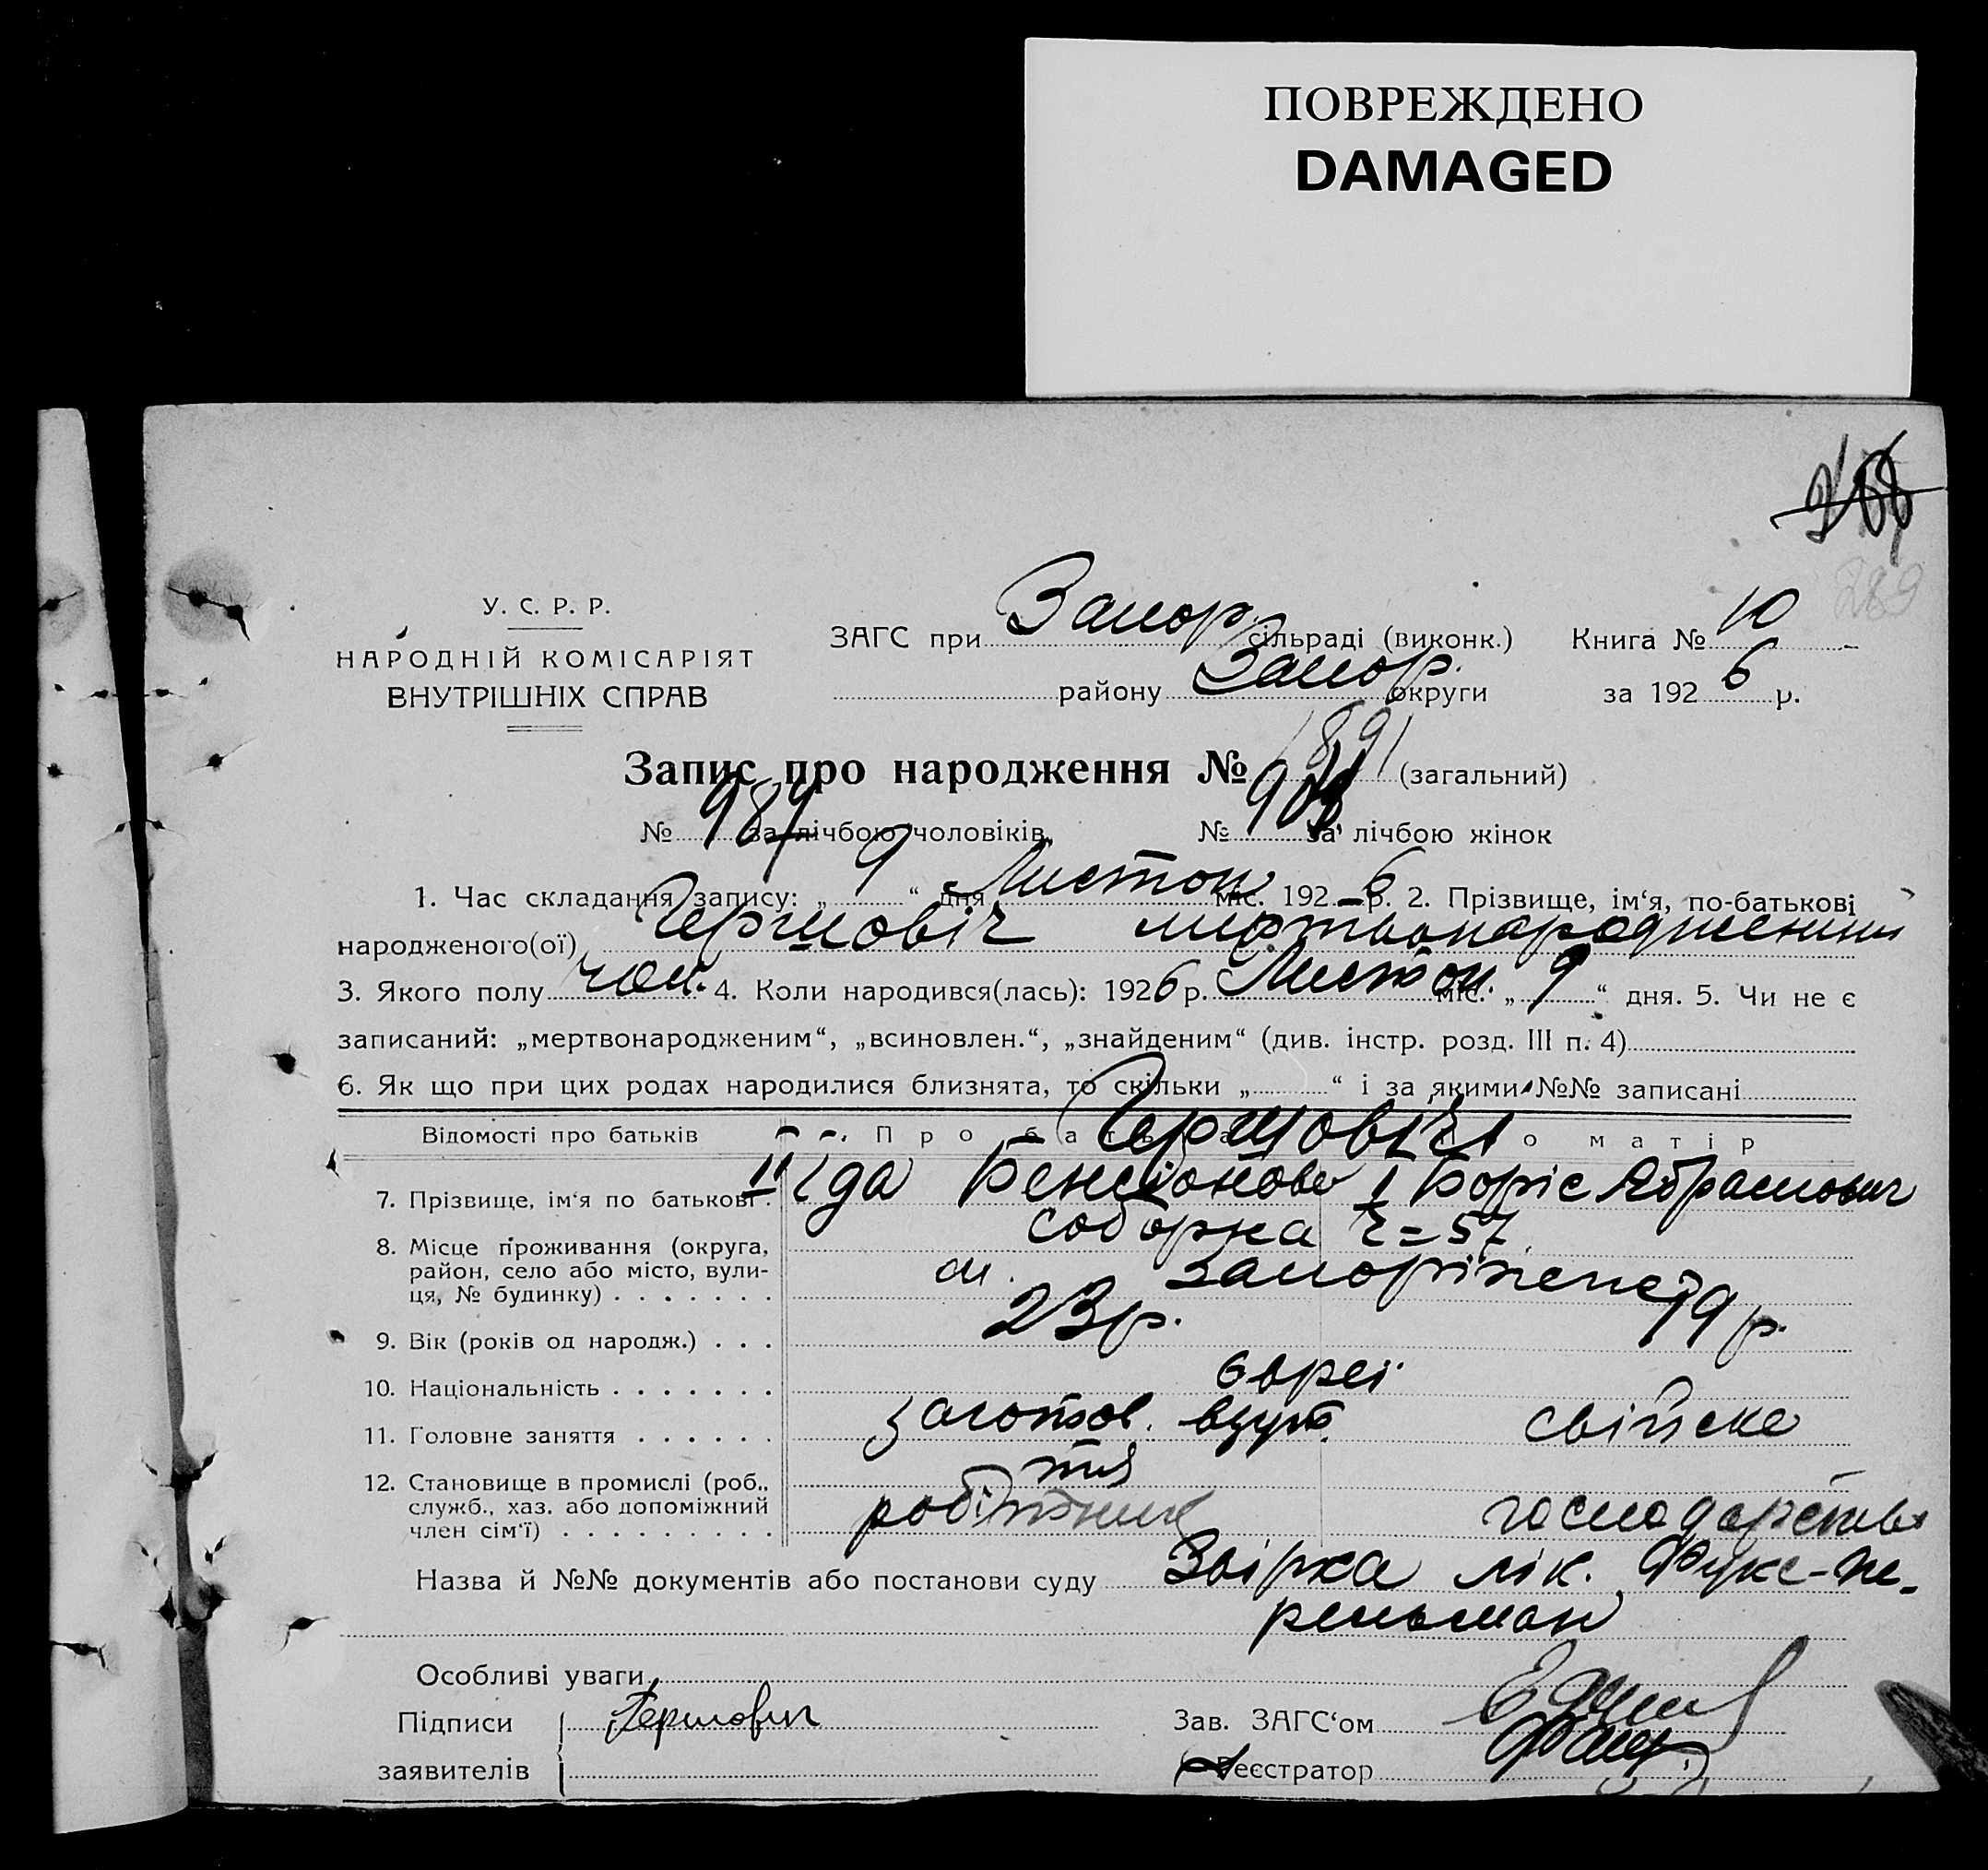 ПОВРЕЖДЕНО
DAMAGED
289
У. С. Р. Р.
НАРОДНІЙ КОМІСАРІЯТ
ВНУТРІШНІХ СПРАВ
ЗАГС при Запор. сільраді (виконк.) Книга № 10
району Запор. округи за 1926 р.
Запис про народження № 1891 (загальний)
№ 987 за лічбою чоловіків, № за лічбою жінок
1. Час складання запису: „ 9 “ дня Листоп міс. 1926 р. 2. Прізвище, ім‘я, по-батькові
народженого(ої) Гершовіч мертвонароджений
3. Якого полу чол. 4. Коли народився(лась): 1926 р. Листоп. міс. „ 9 “ дня. 5. Чи не є
записаний: „мертвонародженим“, „всиновлен.“, „знайденим“ (див. інстр. розд. III п. 4)
6. Як що при цих родах народилися близнята, то скільки „ “ і за якими №№ записані
Відомості про батьків Про батька Про матір
Гершовічі
7. Прізвище, ім‘я по батькові . II Іда Бенціонова I Боріс Абрамович
8. Місце проживання (округа, Соборна ч=57
район, село або місто, вули- м. Запоріжжє
ця, № будинку) . . . . . . .
9. Вік (років од народж.) . . . 23 р. 19 р.
10. Національність . . . . . . . євреї
11. Головне заняття . . . . . . заготов. взут свійске
тя
12. Становище в промислі (роб.,
служб., хаз. або допоміжний
член сім‘ї) . . . . . . . . . робітник господарство
Назва й №№ документів або постанови суду Звірка лік. Фукс-Пе-
рельман
Особливі уваги
Підписи Гершович Зав. ЗАГС‘ом
заявителів Реєстратор